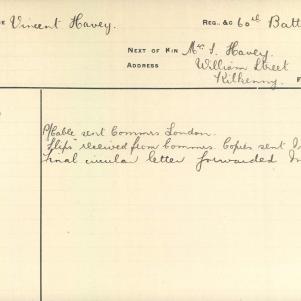 Vincent Havey. REG., &C 60th Batt
NEXT OF KIN Mrs S. Havey.
ADDRESS William Street
Kilkenny.
P/Cable sent Commrs London.
Slips received from Commrs Copies sent
Final circular letter forwarded